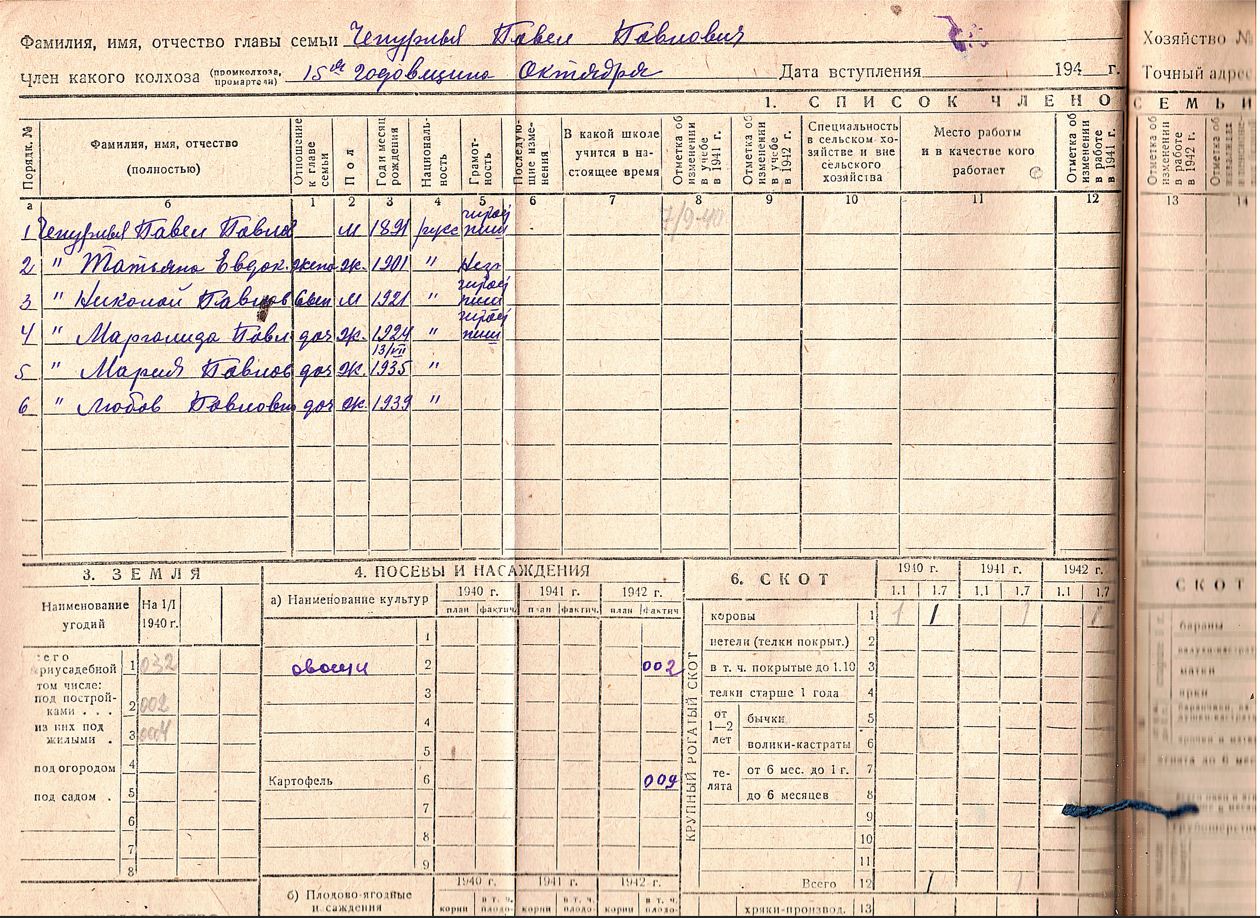 Фамилия, имя, отчество главы семьи Чепурный Павел Павлович
Член какого колхоза (промколхоза, промартели) 15ая годовщина Октября Дата вступления 194 г.
Хозяйство №
Точный адрес
1. СПИСОК ЧЛЕНО
СЕМЬИ
Порядк. №
Фамилия, имя, отчество (полностью)
Отношение к главе семьи
Пол
Год и месяц рождения
Националь-ность
Грамот-ность
Последую-щие изме-нения
В какой школе учится в на-стоящее время
Отметка об изменении в учебе в 1941 г.
Отметка об изменении в учебе в 1942 г.
Специальность в сельском хо-зяйстве и вне сельского хозяйства
Место работы и в качестве кого работает
Отметка об изменении в работе в 1941 г.
Отметка об изменении в работе в 1942 г.
Отметка об
а б 1 2 3 4 5 6 7 8 9 10 11 12 13 14
7/9-40
1 Чепурный Павел Павлов м 1891 русс
2 " Татьяна Евдок. жена ж. 1901 "
3 " Николой Павлов сын м 1921 "
4 " Павл доч ж. 1924 "
13/VII
5 " Мария Павлов доч ж. 1935 "
6 " Любов Павловн доч ж. 1939 "
3. ЗЕМЛЯ
Наименование угодий
На 1/I 1940 г.
всего приусадебной 1 032
том числе:
под построй-ками . . . 2 002
из них под жилыми . 3 004
под огородом 4
под садом . 5
6
7
8
4. ПОСЕВЫ И НАСАЖДЕНИЯ
а) Наименование культур
1940 г. 1941 г. 1942 г.
план фактич. план фактич. план фактич
1
овощи 2 002
3
4
5
Картофель 6 009
7
8
9
б) Плодово-ягодные насаждения
1940 г. 1941 г. 1942 г.
корни в т. ч. плодо- корни в т. ч. плодо- корни в т. ч. плодо-
6. СКОТ
1940 г. 1941 г. 1942 г.
1.1 1.7 1.1 1.7 1.1 1.7
КРУПНЫЙ РОГАТЫЙ СКОТ
коровы 1 1 1 1 1
нетели (телки покрыт.) 2
в т. ч. покрытые до 1.10 3
телки старше 1 года 4
от 1—2 лет
бычки 5
волики-кастраты 6
те-лята
от 6 мес. до 1 г. 7
до 6 месяцев 8
9
10
11
Всего 12 1 1
хряки-производ. 13
СКОТ
бараны
матки
ярки